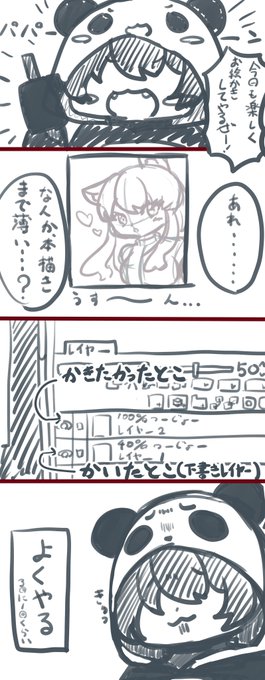 今日も楽しく
お絵かき
してやるぜ!
あれ……
なんか、本描き
まで薄い…?
うす〜ん…
レイヤー
かきたかったとこ
50%
100% つーじょー
レイヤー2
40% つーじょー
レイヤー1
かいたとこ(下書きレイヤー)
よくやる